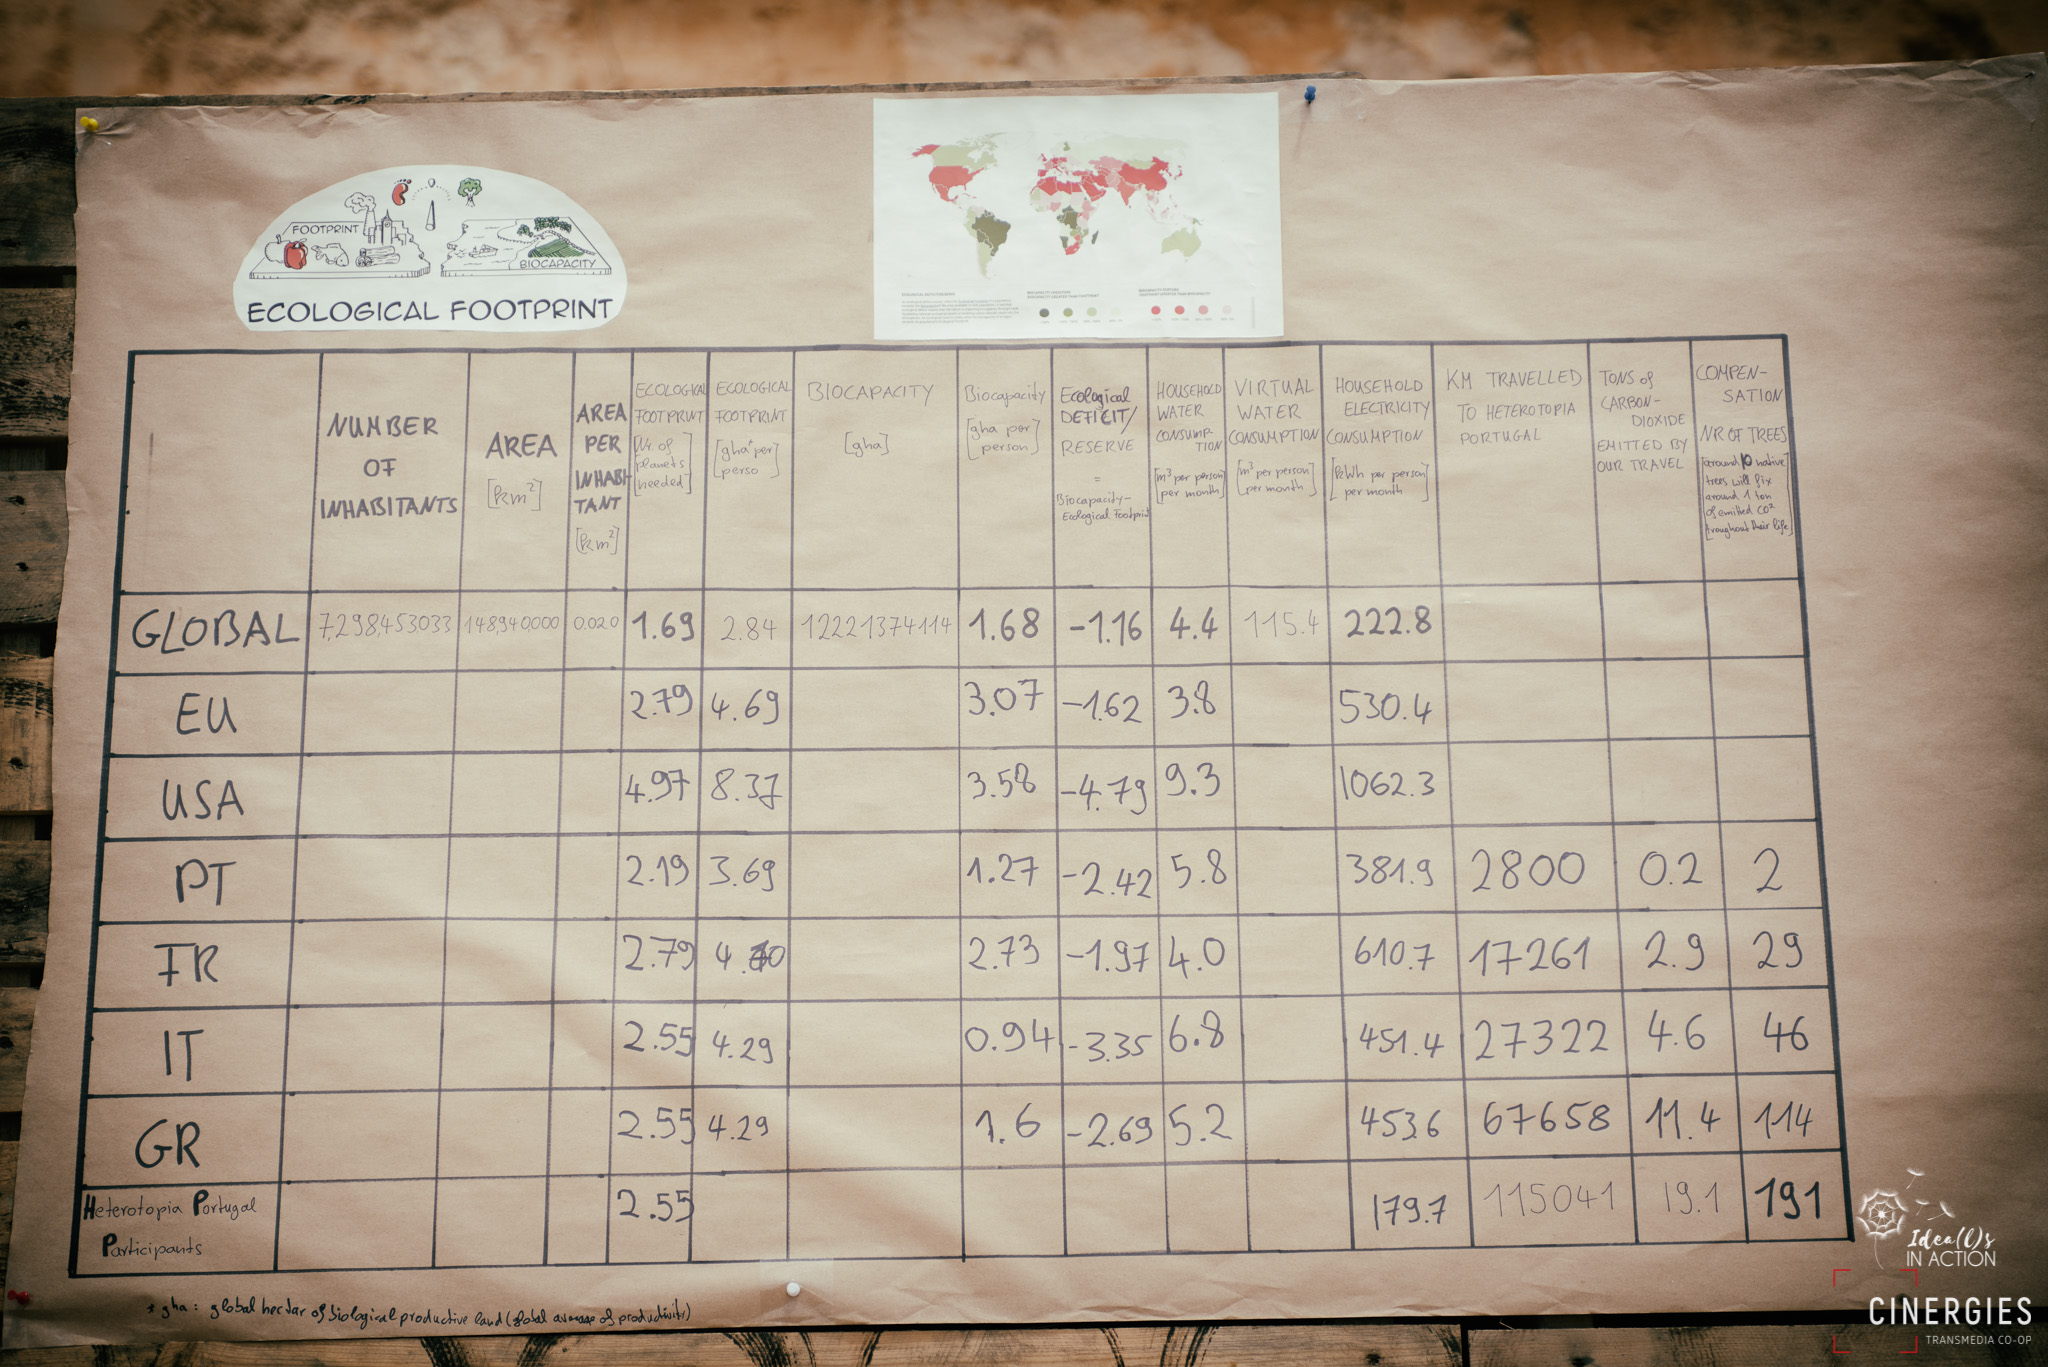 FOOTPRINT
BIOCAPACITY
ECOLOGICAL FOOTPRINT
NUMBER
OF
INHABITANTS
AREA
[km²]
AREA
PER
INHABI-
TANT
[km²]
ECOLOGICAL
FOOTPRINT
[Nr. of
planets
needed]
ECOLOGICAL
FOOTPRINT
[gha* per
perso
BIOCAPACITY
[gha]
Biocapacity
[gha per
person]
Ecological
DEFICIT/
RESERVE
=
Biocapacity-
Ecological Footprint
HOUSEHOLD
WATER
CONSUMP-
TION
[m³ per person
per month]
VIRTUAL
WATER
CONSUMPTION
[m³ per person
per month]
HOUSEHOLD
ELECTRICITY
CONSUMPTION
[kWh per person
per month]
KM TRAVELLED
TO HETEROTOPIA
PORTUGAL
TONS of
CARBON-
DIOXIDE
EMITTED BY
OUR TRAVEL
COMPEN-
SATION
NR OF TREES
[around 10 native
trees will fix
around 1 ton
of emitted CO²
troughout their life]
GLOBAL 7,298,453,033 148,940,000 0.020 1.69 2.84 12221374114 1.68 -1.16 4.4 115.4 222.8
EU 2.79 4.69 3.07 -1.62 3.8 530.4
USA 4.97 8.37 3.58 -4.79 9.3 1062.3
PT 2.19 3.69 1.27 -2.42 5.8 381.9 2800 0.2 2
FR 2.79 4.70 2.73 -1.97 4.0 610.7 17261 2.9 29
IT 2.55 4.29 0.94 -3.35 6.8 451.4 27322 4.6 46
GR 2.55 4.29 1.6 -2.69 5.2 453.6 67658 11.4 114
Heterotopia Portugal
Participants
2.55 179.7 115041 19.1 191
* gha: global hectar of biological productive land (global average of productivity)
Idea(l)s
IN ACTION
CINERGIES
TRANSMEDIA CO-OP